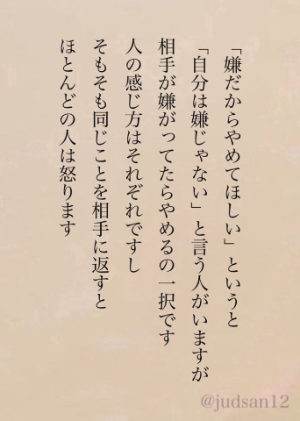 「嫌だからやめてほしい」というと
「自分は嫌じゃない」と言う人がいますが
相手が嫌がってたらやめるの一択です
人の感じ方はそれぞれですし
そもそも同じことを相手に返すと
ほとんどの人は怒ります
@judsan12